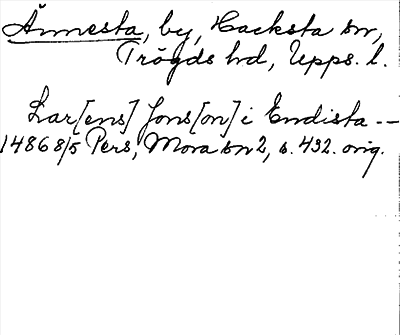 Ännesta, by, Hacksta sn,
Trögds hd, Upps. l.
Lar[ens] Jons[on] i Endista --
1486 8/5 Pers, Mora sn 2, s. 432. orig.